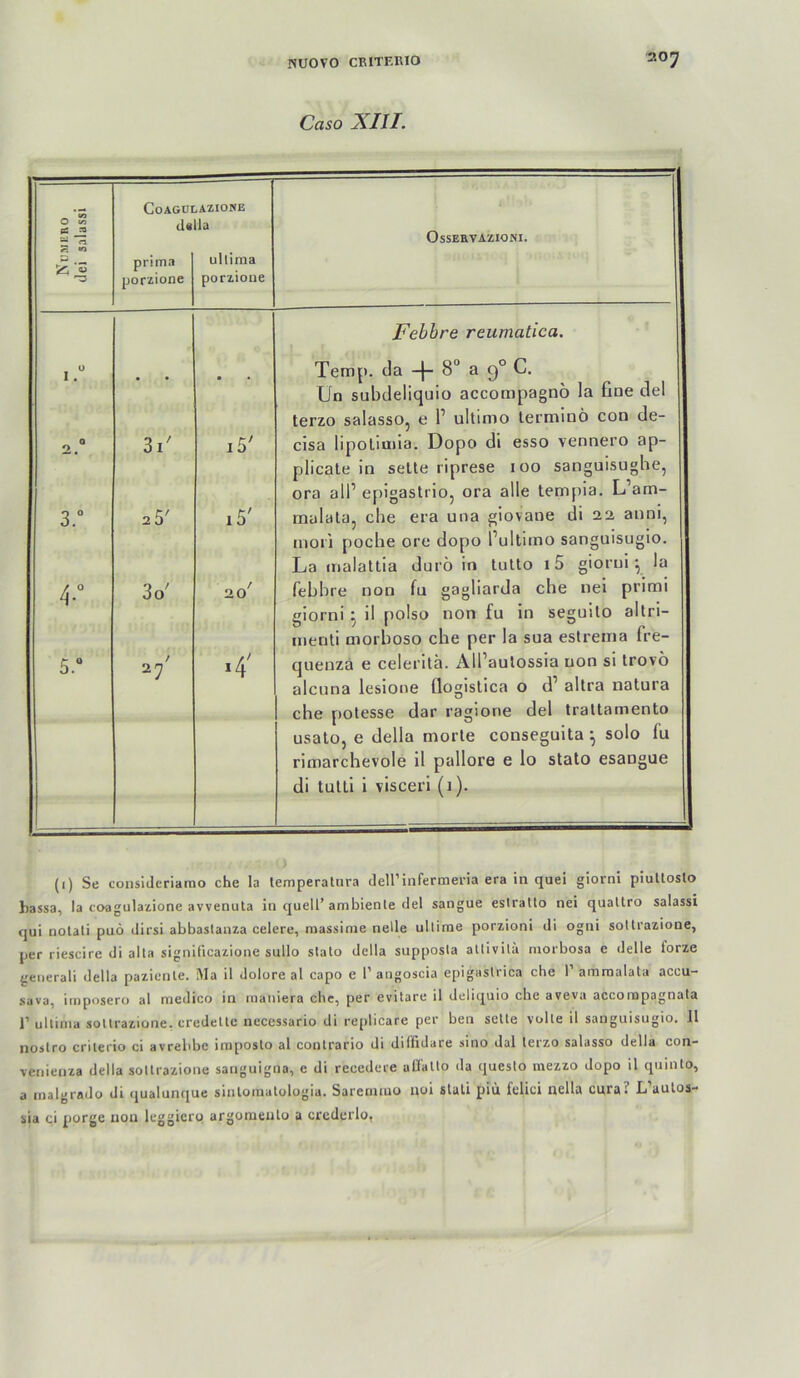 NUOVO CRITERIO
207
Caso XIII.
Numero
dei salassi
Coagulazione
della
prima
porzione
ultima
porzione
Osservazioni.
1.º . . . .
2.º 31′ 15′
3.º 25′ 15′
4.º 30′ 20′
5.º 27′ 14′
Febbre reumatica.
Temp. da + 8º a 9º C.
Un subdeliquio accompagnò la fine del
terzo salasso, e l’ ultimo terminò con de-
cisa lipotimia. Dopo di esso vennero ap-
plicate in sette riprese 100 sanguisughe,
ora all’ epigastrio, ora alle tempia. L’am-
malata, che era una giovane di 22 anni,
morì poche ore dopo l’ultimo sanguisugio.
La malattia durò in tutto 15 giorni; la
febbre non fu gagliarda che nei primi
giorni; il polso non fu in seguito altri-
menti morboso che per la sua estrema fre-
quenza e celerità. All’autossia non si trovò
alcuna lesione flogistica o d’ altra natura
che potesse dar ragione del trattamento
usato, e della morte conseguita; solo fu
rimarchevole il pallore e lo stato esangue
di tutti i visceri (1).
(1) Se consideriamo che la temperatura dell’infermeria era in quei giorni piuttosto
bassa, la coagulazione avvenuta in quell’ ambiente del sangue estratto nei quattro salassi
qui notati può dirsi abbastanza celere, massime nelle ultime porzioni di ogni sottrazione,
per riescire di alta significazione sullo stato della supposta attività morbosa e delle forze
generali della paziente. Ma il dolore al capo e l’ angoscia epigastrica che l’ ammalata accu-
sava, imposero al medico in maniera che, per evitare il deliquio che aveva accompagnata
l’ ultima sottrazione, credette necessario di replicare per ben sette volte il sanguisugio. Il
nostro criterio ci avrebbe imposto al contrario di diffidare sino dal terzo salasso della con-
venienza della sottrazione sanguigna, e di recedere affatto da questo mezzo dopo il quinto,
a malgrado di qualunque sintomatologia. Saremmo noi stati più felici nella cura? L’autos-
sia ci porge non leggiero argomento a crederlo.